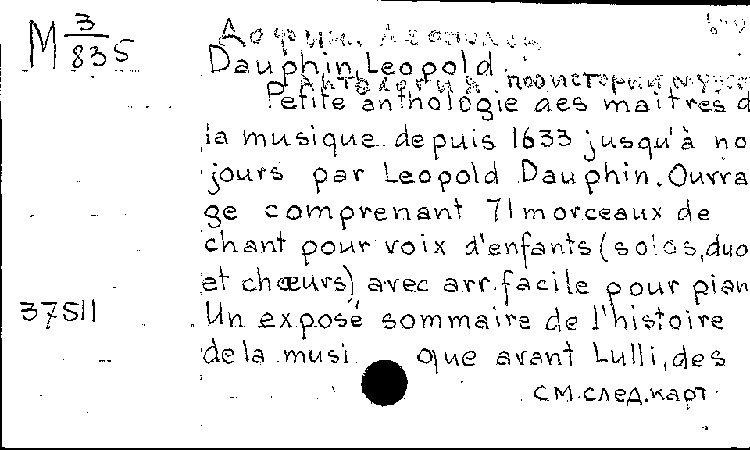 M 3/835
Дофин. Леопольд
Dauphin, Leopold.
Petite anthologie des maîtres d
la musique depuis 1633 jusqu'à no
jours par Leopold Dauphin. Ouvra
ge comprenant 71 morceaux de
chant pour voix d'enfants (solos, duo
et chœurs) avec arr. facile pour pian
37511 Un exposé sommaire de l'histoire
de la musi que avant Lulli, des
см. след. карт.